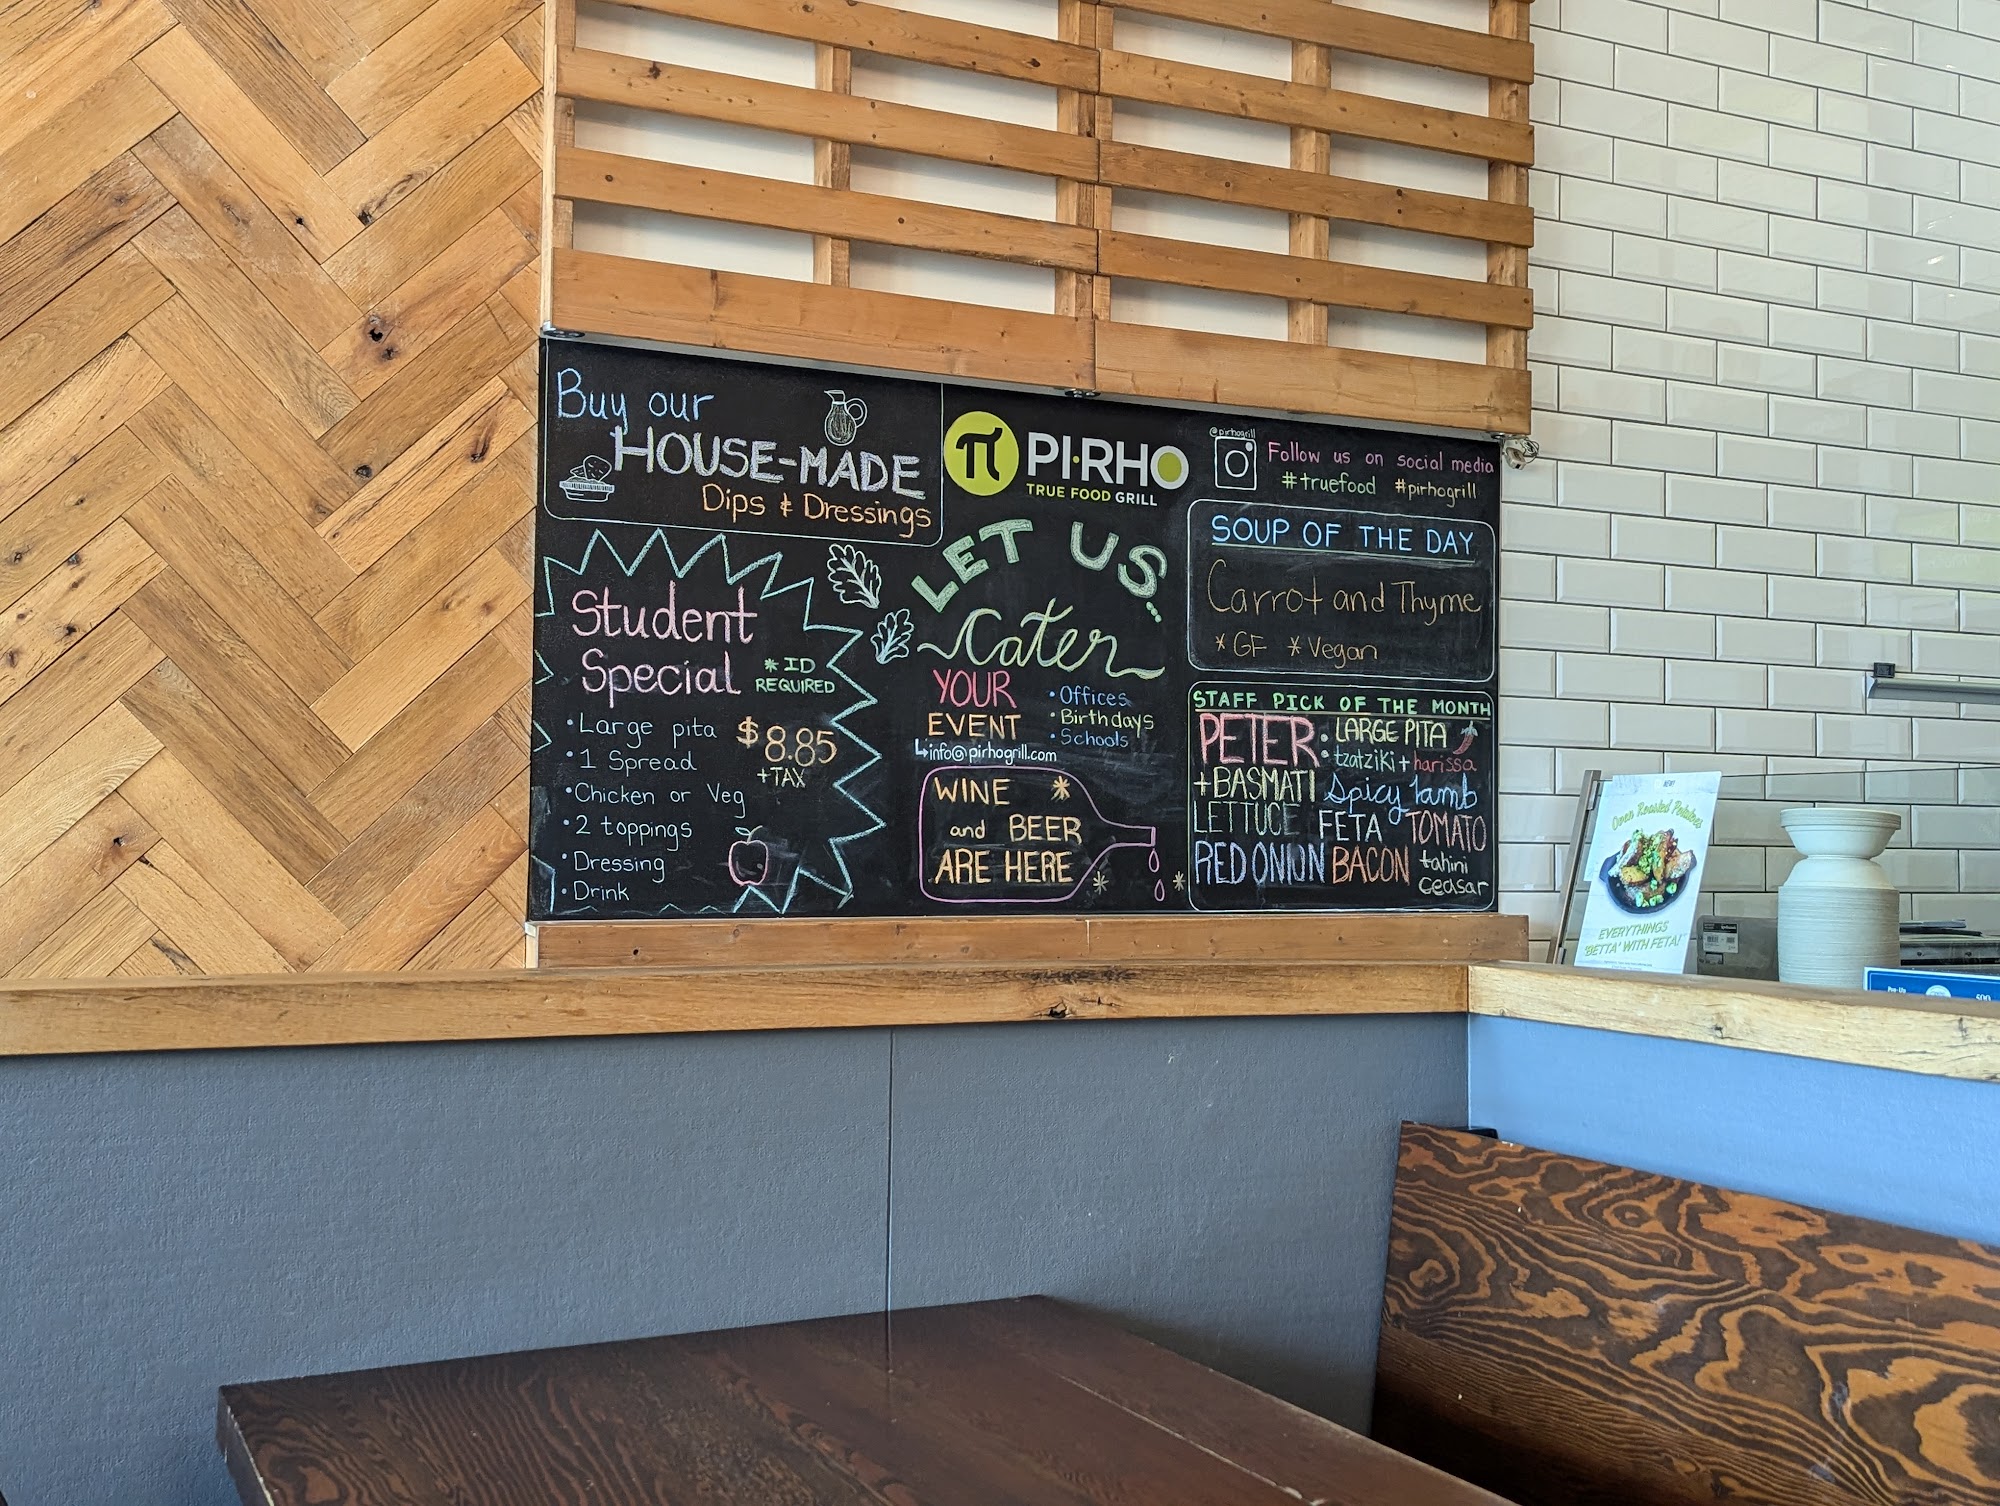 Buy our
HOUSE-MADE
Dips & Dressings
Student
Special
* ID
REQUIRED
• Large pita
• 1 Spread
• Chicken or Veg
• 2 toppings
• Dressing
• Drink
$8.85
+TAX
π PI·RHO
TRUE FOOD GRILL
LET US...
Cater
YOUR
EVENT
• Offices
• Birthdays
• Schools
↳info@pirhogrill.com
WINE
and BEER
ARE HERE
@pirhogrill
Follow us on social media
#truefood #pirhogrill
SOUP OF THE DAY
Carrot and Thyme
* GF * Vegan
STAFF PICK OF THE MONTH
PETER • LARGE PITA
• tzatziki + harissa
+ BASMATI Spicy lamb
LETTUCE FETA TOMATO
RED ONION BACON tahini
ceasar
NEW!
Oven Roasted Potatoes
EVERYTHINGS
'BETTA' WITH FETA!